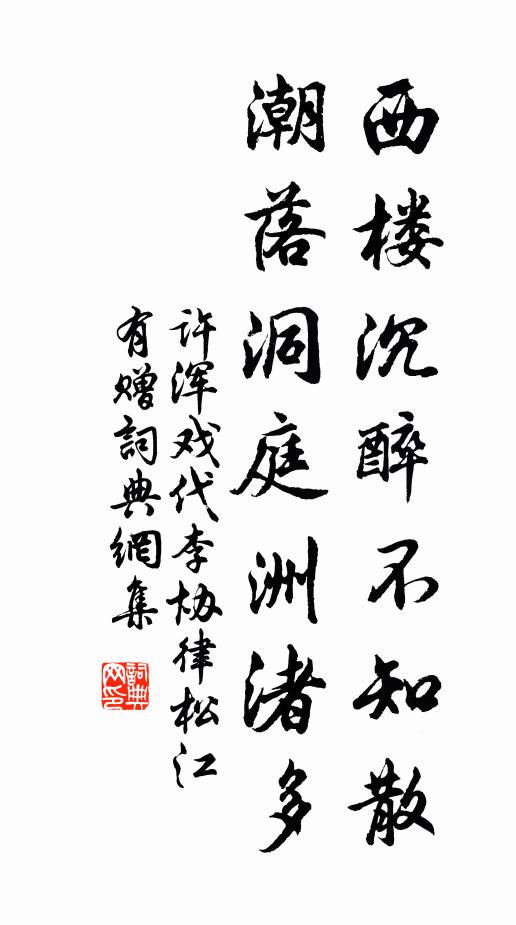 西楼沉醉不知散
潮落洞庭洲渚多
许浑戏代李协律松江
有赠词典網集
詞典网印